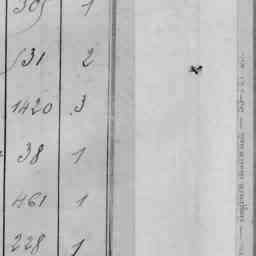 305 1
531 2
1420 3
38 1
461 1
228 1